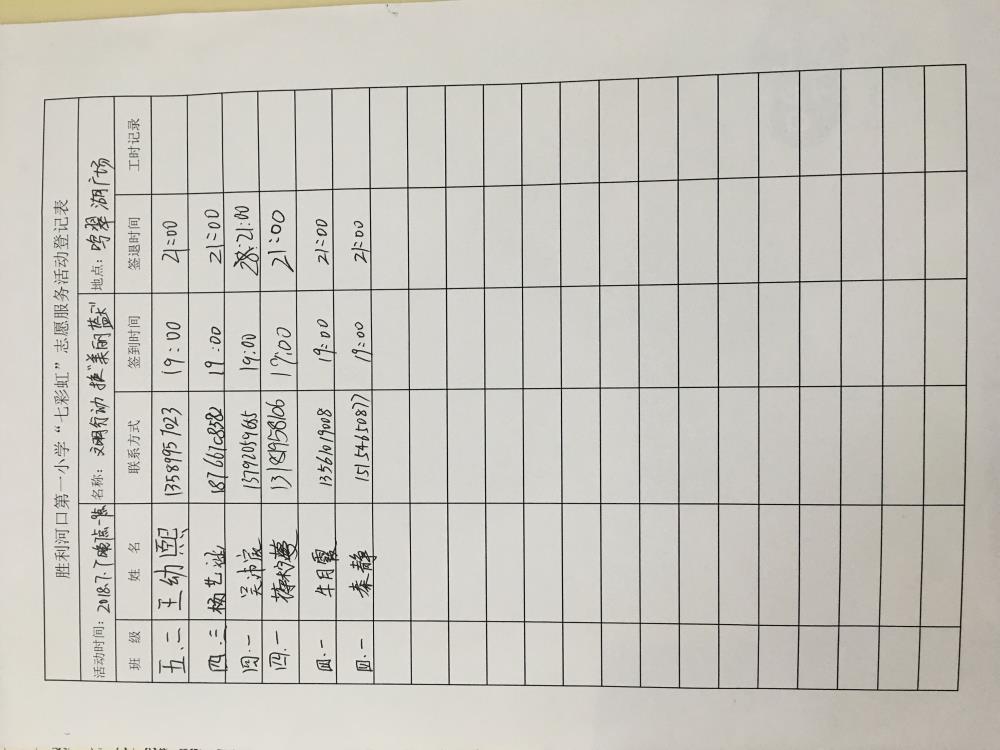 胜利河口第一小学“七彩虹”志愿服务活动登记表
活动时间：2018.7. 名称：文明行动 护“美丽蓝” 地点：鸣翠湖广场
班 级 姓 名 联系方式 签到时间 签退时间 工时记录
五.二 王幼熙 13589957023 19:00 21:00
四.三 杨艺 18766708582 19:00 21:00
四.一 吴沛宸 15792059665 19:00 21:00
四.一 13181958106 19:00 21:00
四.一 牛月霞 13561019008 19:00 21:00
四.一 秦静 15154650877 19:00 21:00